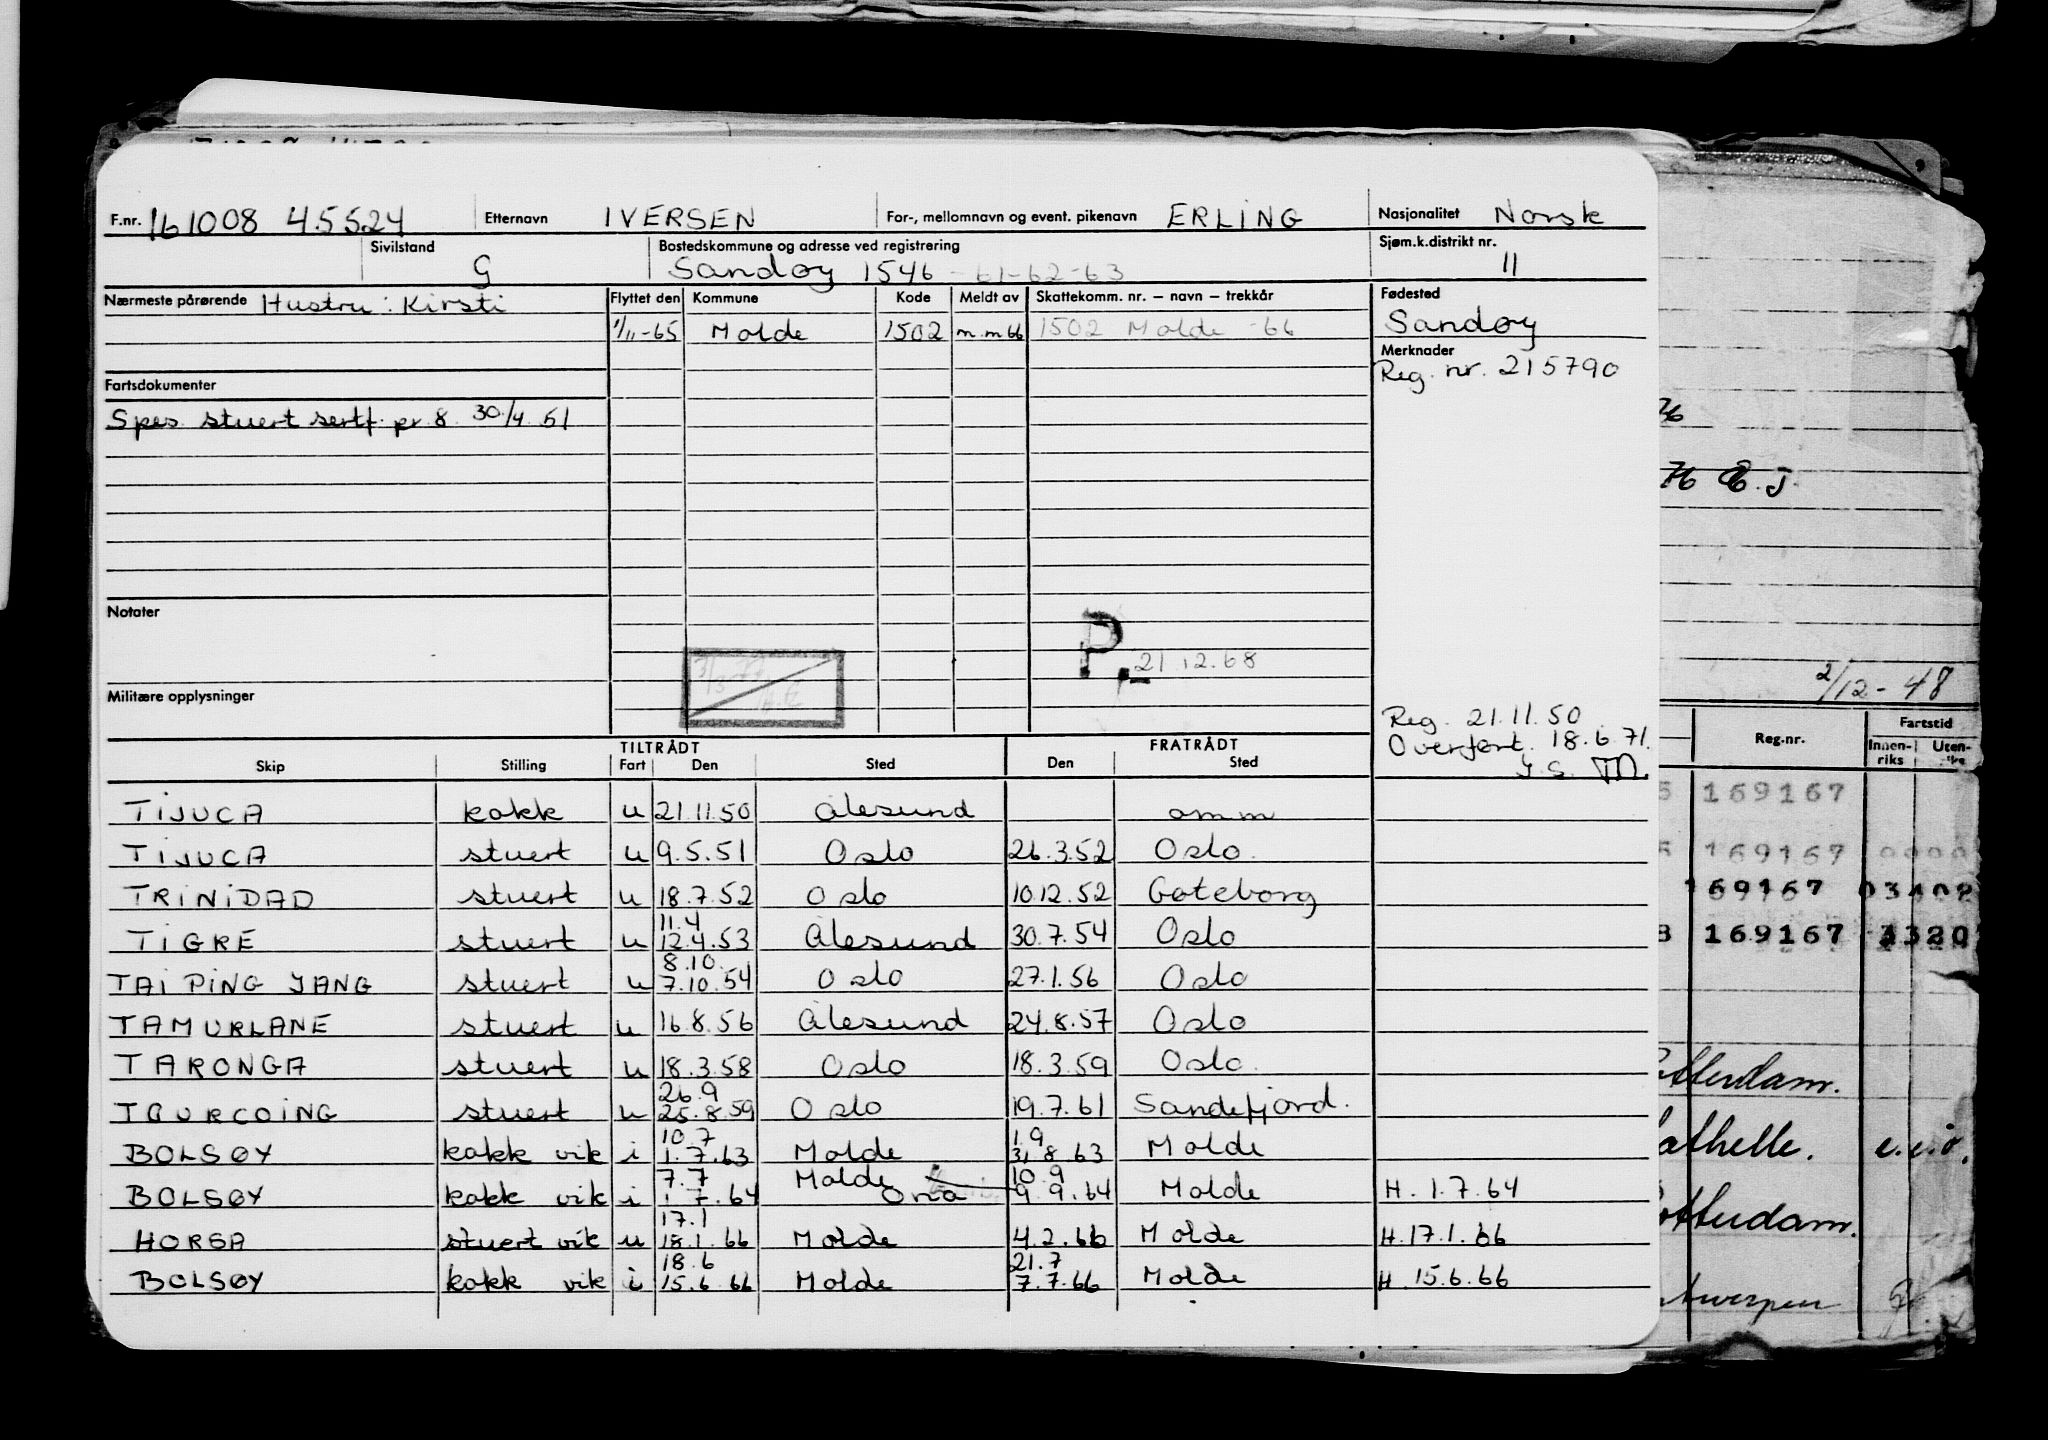 F.nr. 161008 45524 Etternavn IVERSEN For-, mellomnavn og event. pikenavn ERLING Nasjonalitet Norsk
Sivilstand G Bostedskommune og adresse ved registrering Sandøy 1546 - 61-62-63 Sjøm.k.distrikt nr. 11
Nærmeste pårørende Hustru: Kirsti Flyttet den Kommune Kode Meldt av Skattekomm. nr. – navn – trekkår Fødested
1/11-65 Molde 1502 m.m 66 1502 Molde -66 Sandøy
Merknader
Reg. nr. 215790
Fartsdokumenter
Spes stuert sertf. pr 8. 30/4 51
Notater
P. 21.12.68
Militære opplysninger
Reg. 21.11.50
Overført. 18.6.71.
TILTRÅDT FRATRÅDT
Skip Stilling Fart Den Sted Den Sted
TIJUCA kokk u 21.11.50 Ålesund omm
TIJUCA stuert u 9.5.51 Oslo 26.3.52 Oslo.
TRINIDAD stuert u 18.7.52 Oslo 10.12.52 Gøteborg
11.4
TIGRE stuert u 12.4.53 Ålesund 30.7.54 Oslo
8.10.
TAI PING YANG stuert u 7.10.54 Oslo 27.1.56 Oslo
TAMURLANE stuert u 16.8.56 Ålesund 24.8.57 Oslo
TARONGA stuert u 18.3.58 Oslo 18.3.59 Oslo.
26.9
TOURCOING stuert u 25.8.59 Oslo 19.7.61 Sandefjord.
10.7 1.9
BOLSØY kokk vik i 1.7.63 Molde 31.8.63 Molde
7.7 Molde 10.9
BOLSØY kokk vik i 1.7.64 Ona 9.9.64 Molde H. 1.7.64
17.1
HORSA stuert vik u 18.1.66 Molde 4.2.66 Molde H.17.1.66
18.6 21.7
BOLSØY kokk vik i 15.6.66 Molde 7.7.66 Molde H. 15.6.66
76 E.J.
2/12-48
Reg.nr. Fartstid
Innen-riks Uten-
169167
169167
169167 03402
169167